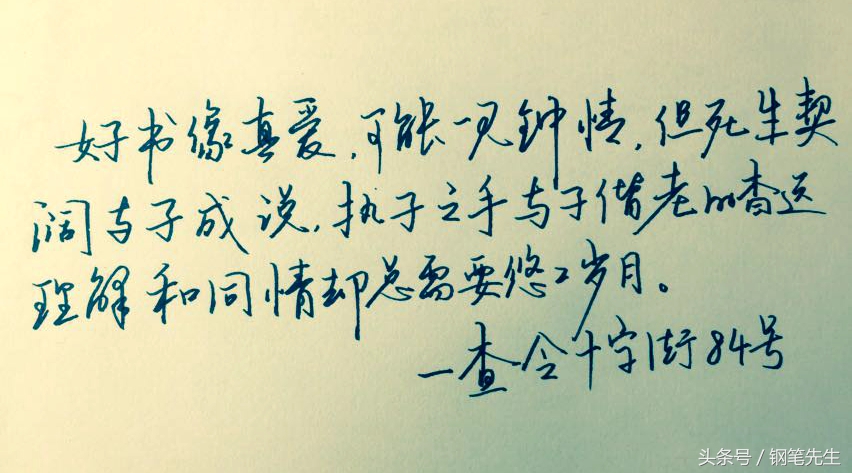 好书像真爱,可能一见钟情,但死生契
阔与子成说,执子之手与子偕老的杳远
理解和同情却总需要悠々岁月。
一查令十字街84号
头条号/钢笔先生